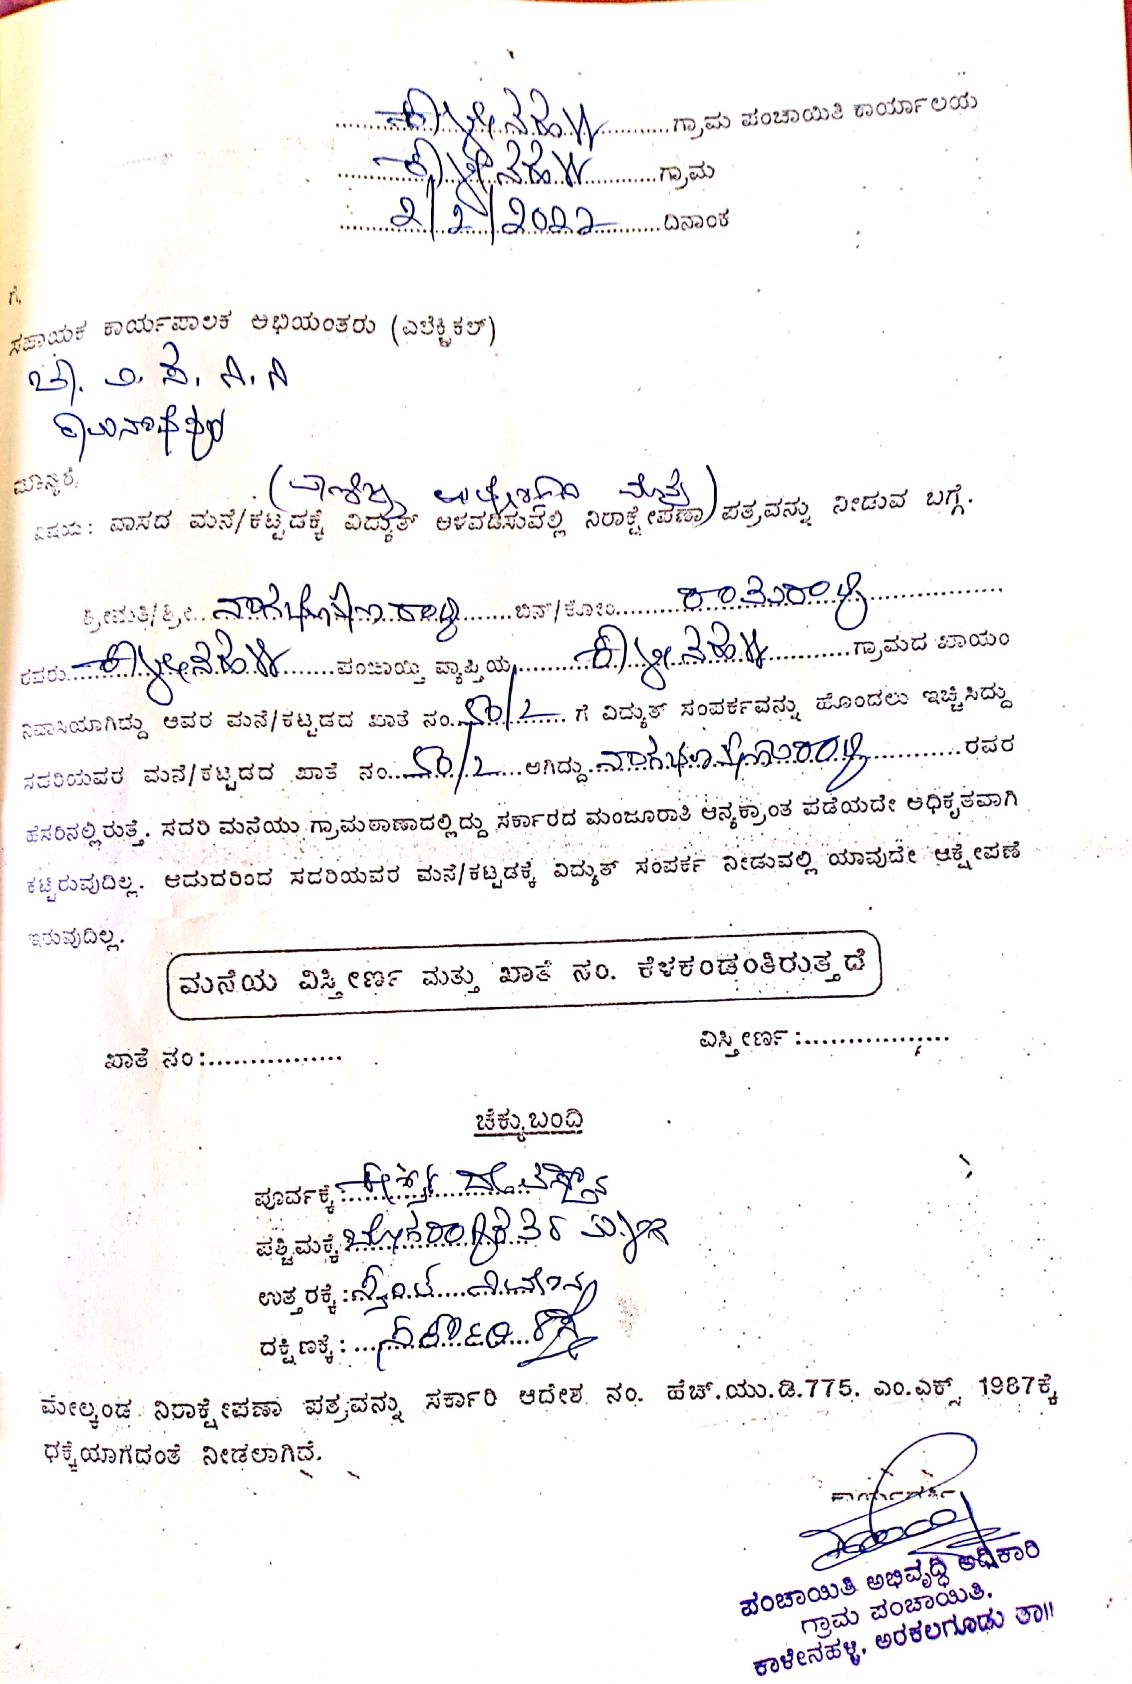 ಕಾಳೇನಹಳ್ಳಿ ಗ್ರಾಮ ಪಂಚಾಯಿತಿ ಕಾರ್ಯಾಲಯ
ಕಾಳೇನಹಳ್ಳಿ ಗ್ರಾಮ
2/2/2022 ದಿನಾಂಕ
ಗೆ,
ಸಹಾಯಕ ಕಾರ್ಯಪಾಲಕ ಅಭಿಯಂತರು (ಎಲೆಕ್ಟ್ರಿಕಲ್)
ಮಾನ್ಯರೆ,
ವಿಷಯ: ವಾಸದ ಮನೆ/ಕಟ್ಟಡಕ್ಕೆ ವಿದ್ಯುತ್ ಅಳವಡಿಸುವಲ್ಲಿ ನಿರಾಕ್ಷೇಪಣಾ ಪತ್ರವನ್ನು ನೀಡುವ ಬಗ್ಗೆ.
ಶ್ರೀಮತಿ/ಶ್ರೀ ನಾಗಭೂಷಣಾರಾಧ್ಯ ಬಿನ್/ಕೋಂ
ರವರು ಕಾಳೇನಹಳ್ಳಿ ಪಂಚಾಯ್ತಿ ವ್ಯಾಪ್ತಿಯ ಕಾಳೇನಹಳ್ಳಿ ಗ್ರಾಮದ ಖಾಯಂ
ನಿವಾಸಿಯಾಗಿದ್ದು ಅವರ ಮನೆ/ಕಟ್ಟಡದ ಖಾತೆ ನಂ. 50/2 ಗೆ ವಿದ್ಯುತ್ ಸಂಪರ್ಕವನ್ನು ಹೊಂದಲು ಇಚ್ಚಿಸಿದ್ದು
ಸದರಿಯವರ ಮನೆ/ಕಟ್ಟಡದ ಖಾತೆ ನಂ. 50/2 ಆಗಿದ್ದು ನಾಗಭೂಷಣಾರಾಧ್ಯ ರವರ
ಹೆಸರಿನಲ್ಲಿರುತ್ತೆ. ಸದರಿ ಮನೆಯು ಗ್ರಾಮಠಾಣಾದಲ್ಲಿದ್ದು ಸರ್ಕಾರದ ಮಂಜೂರಾತಿ ಆನ್ಯಕ್ರಾಂತ ಪಡೆಯದೇ ಅಧಿಕೃತವಾಗಿ
ಕಟ್ಟಿರುವುದಿಲ್ಲ. ಆದುದರಿಂದ ಸದರಿಯವರ ಮನೆ/ಕಟ್ಟಡಕ್ಕೆ ವಿದ್ಯುತ್ ಸಂಪರ್ಕ ನೀಡುವಲ್ಲಿ ಯಾವುದೇ ಆಕ್ಷೇಪಣೆ
ಇರುವುದಿಲ್ಲ.
ಮನೆಯ ವಿಸ್ತೀರ್ಣ ಮತ್ತು ಖಾತೆ ನಂ. ಕೆಳಕಂಡಂತಿರುತ್ತದೆ
ಖಾತೆ ನಂ:................ ವಿಸ್ತೀರ್ಣ:.................
ಚೆಕ್ಕುಬಂದಿ
ಪೂರ್ವಕ್ಕೆ:
ಪಶ್ಚಿಮಕ್ಕೆ:
ಉತ್ತರಕ್ಕೆ:
ದಕ್ಷಿಣಕ್ಕೆ: ರಸ್ತೆ
ಮೇಲ್ಕಂಡ ನಿರಾಕ್ಷೇಪಣಾ ಪತ್ರವನ್ನು ಸರ್ಕಾರಿ ಆದೇಶ ನಂ. ಹೆಚ್.ಯು.ಡಿ.775. ಎಂ.ಎಕ್ಸ್ 1987ಕ್ಕೆ
ಧಕ್ಕೆಯಾಗದಂತೆ ನೀಡಲಾಗಿದೆ.
ಕಾರ್ಯದರ್ಶಿ
ಪಂಚಾಯಿತಿ ಅಭಿವೃದ್ಧಿ ಅಧಿಕಾರಿ
ಗ್ರಾಮ ಪಂಚಾಯಿತಿ.
ಕಾಳೇನಹಳ್ಳಿ. ಅರಕಲಗೂಡು ತಾ॥